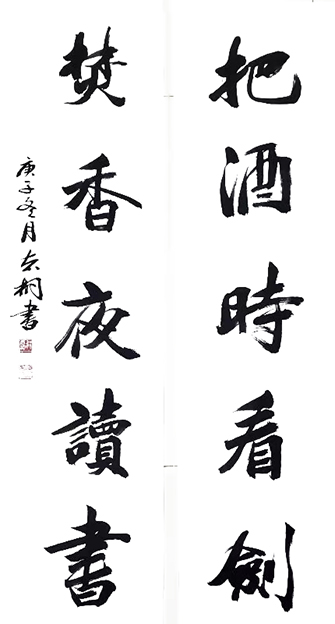 把酒時看劍
焚香夜讀書
庚子冬月
書